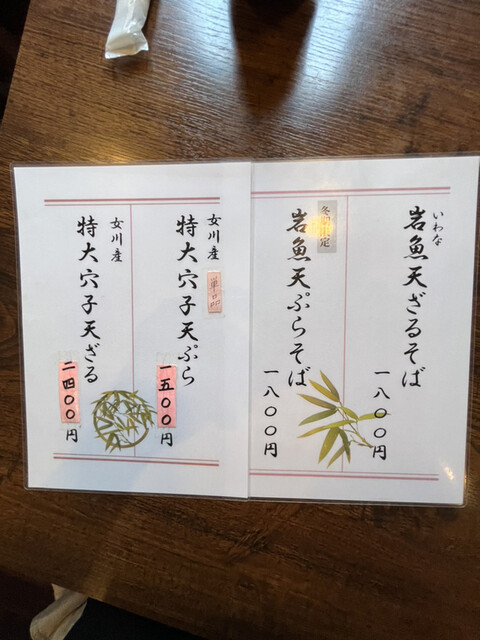 いわな
岩魚天ざるそば
一八〇〇円
冬期限定
岩魚天ぷらそば
一八〇〇円
女川産
単品
特大穴子天ぷら
一五〇〇円
女川産
特大穴子天ざる
二四〇〇円